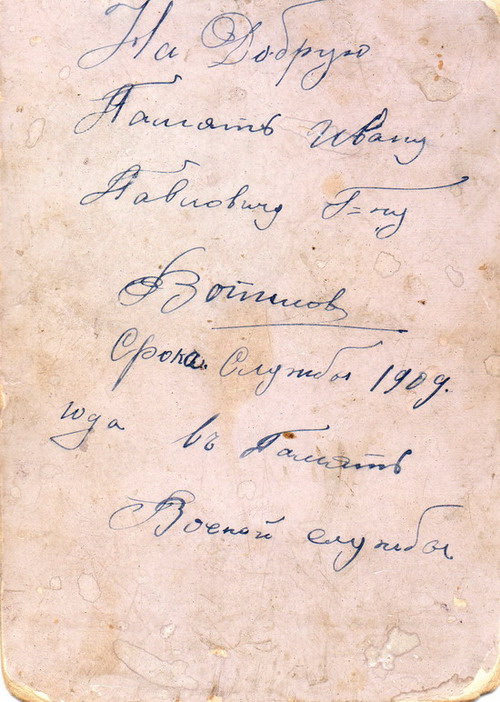 На Добрую
Память Ивану
Павловичу Г=ну
Вотинов
Срока Службы 1909.
года въ Память
Воекой службы